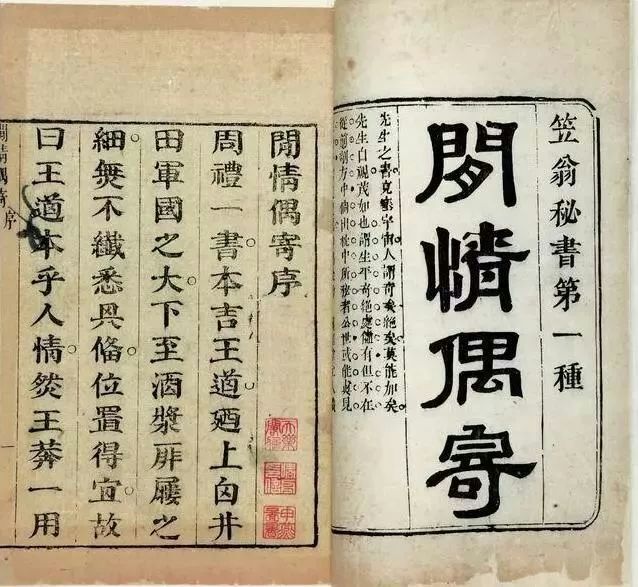 笠翁秘書第一種
閒情偶寄
先生之書充塞宇宙人謂奇矣絕矣莫能加矣
先生自視蔑如也謂生平奇絕處儘有但不在
枕中所秘者公世或能
閒情偶寄序
周禮一書本言王道廼上自井
田軍國之大下至酒漿屝屨之
細無不纖悉具俻位置得宜故
曰王道本乎人情然王莽一用
閒情偶寄 序